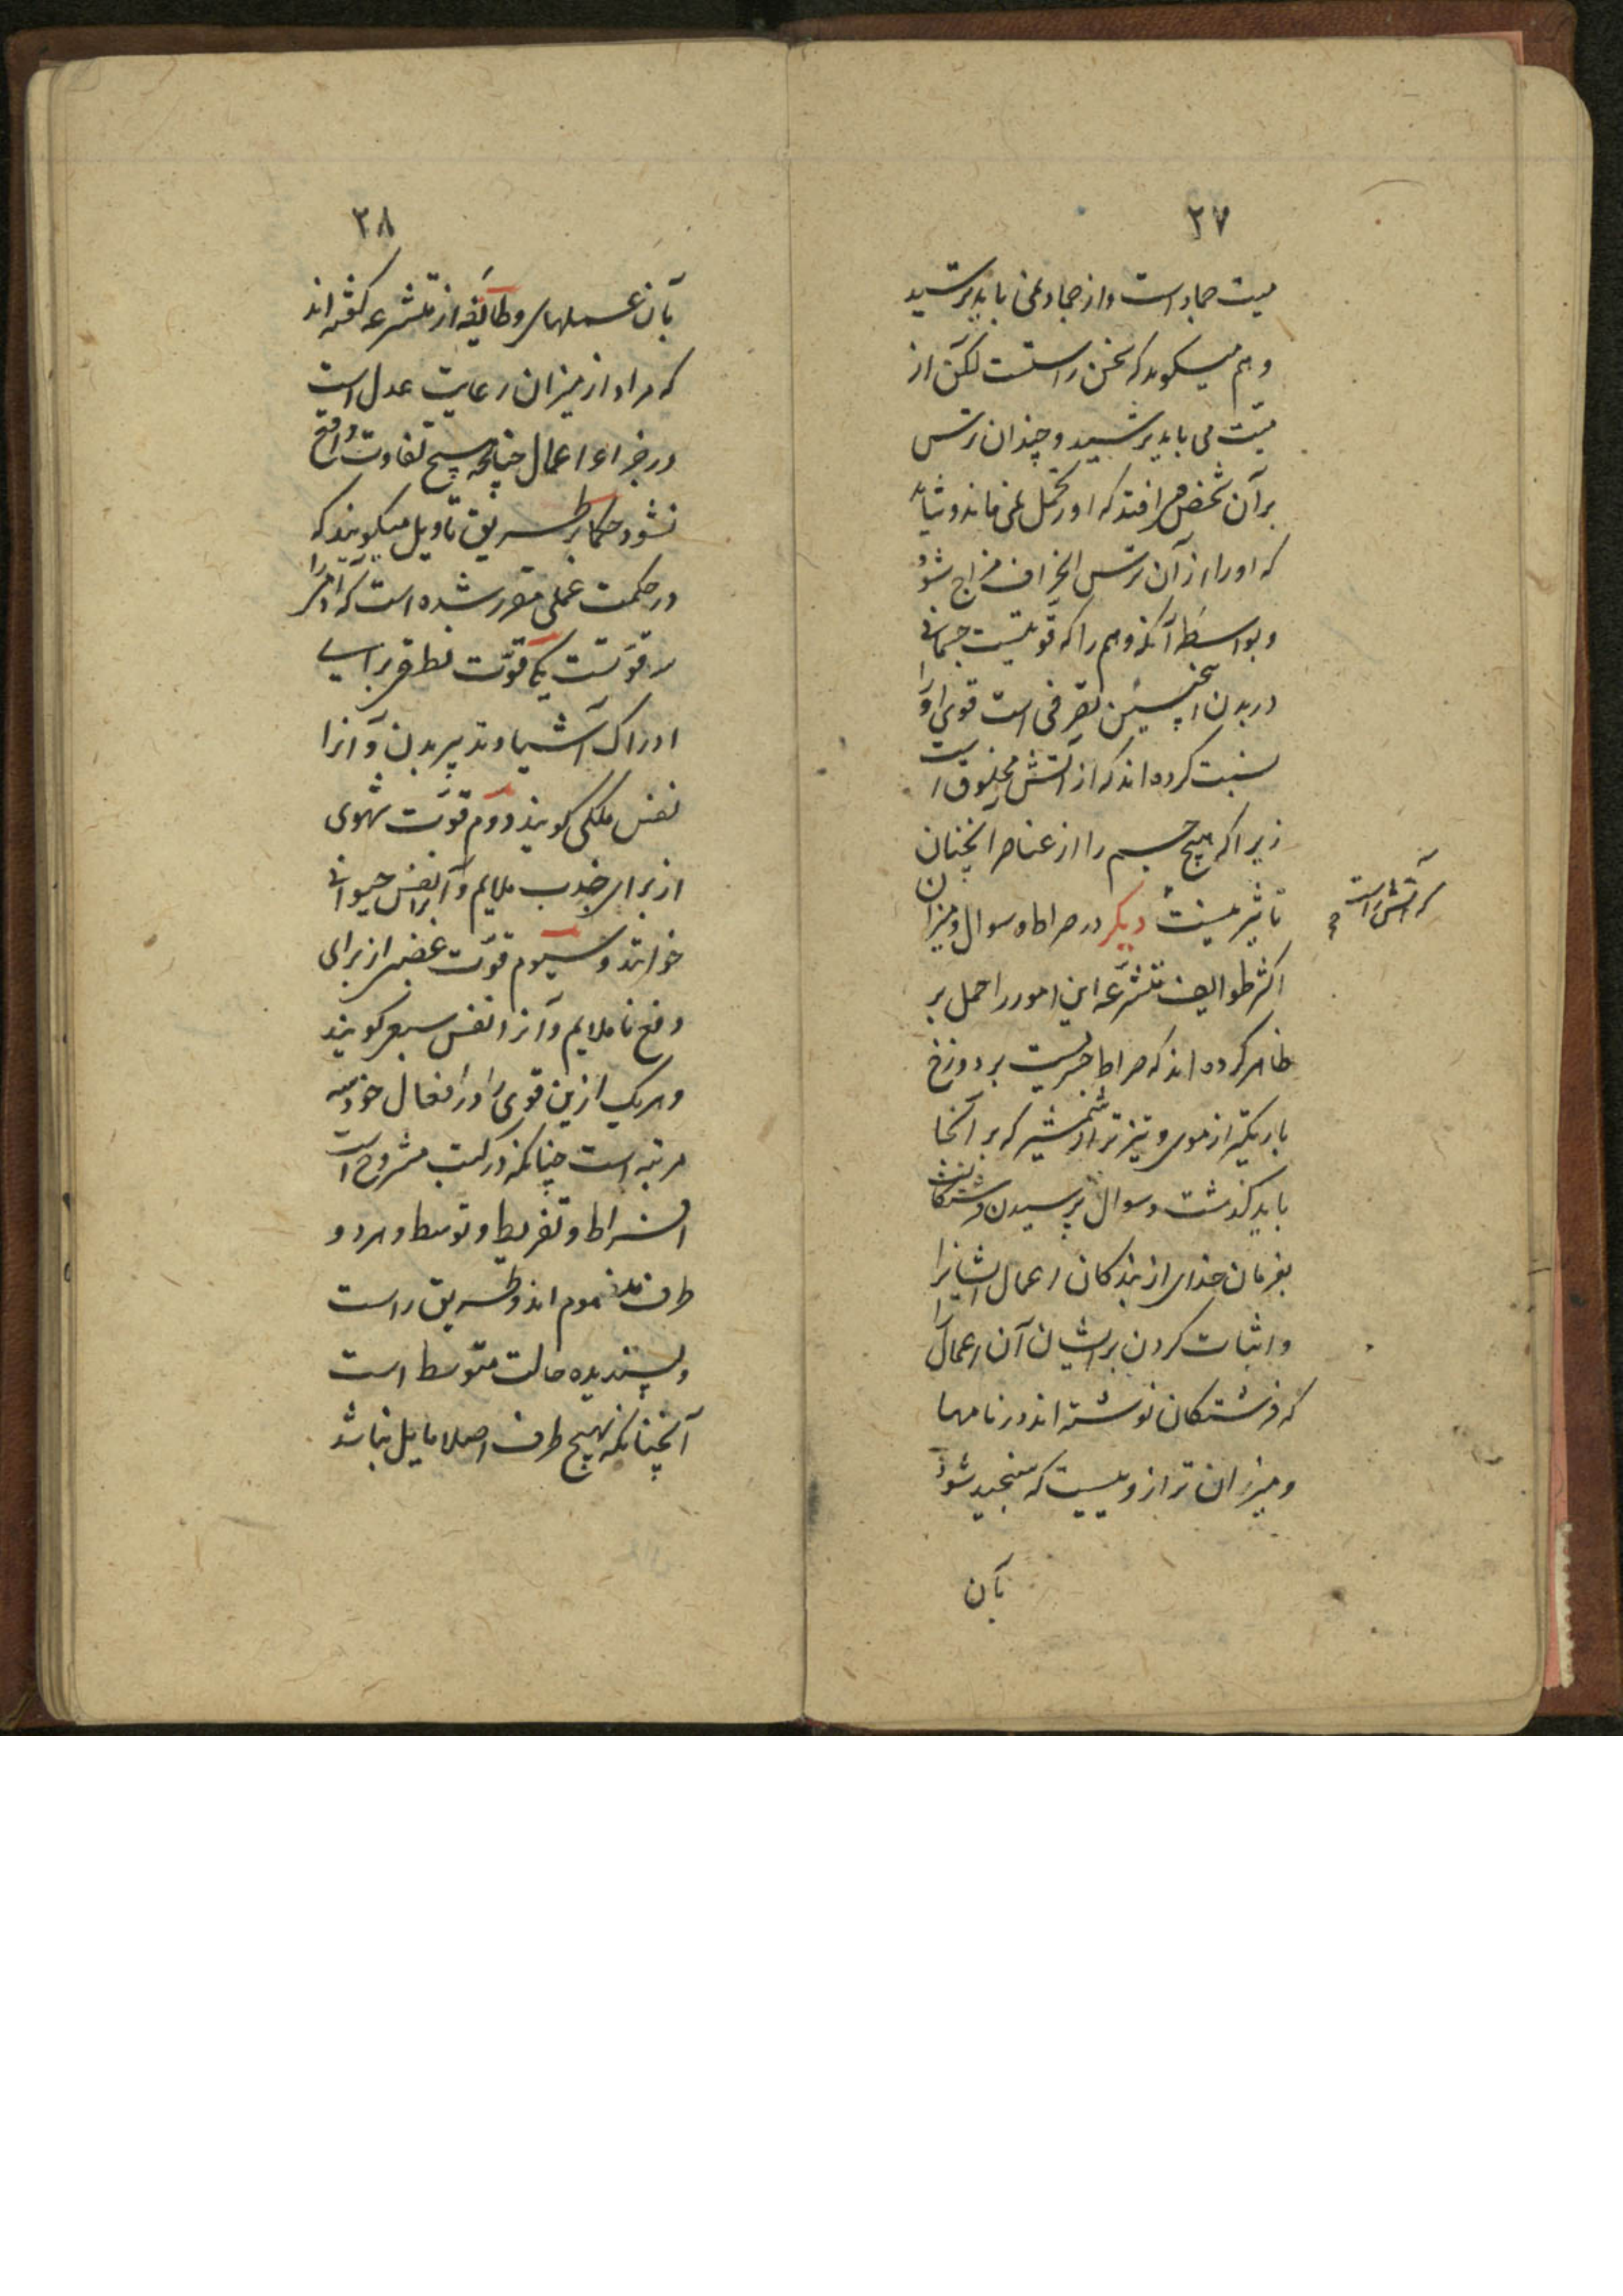 ۲۷
میت جماد است و از جماد نمی باید ترسید
و هم میکوید که سخن راستست لکن از
میّت می باید ترسید و چندان ترس
بر آن شخص می افتد که او را تحمل نمی ماند و شاید
که او را از آن ترس انحراف مزاج شود
و بواسطه آنکه وهم را که قوتیست جسمانی
در بدن اینچنین تصرفی است قوی او را
نسبت کرده اند که از آتش مخلوق است
زیرا که هیچ جسم را از عناصر آنچنان
تاثیر نیست دیکر در صراط و سوال و میزان
که آتش راست
اکثر طوایف متشرّعه این امور را حمل بر
ظاهر کرده اند که صراط جسریست بر دوزخ
باریکتر از موی و تیزتر از شمشیر که بر آنجا
باید کذشت و سوال پرسیدن فرشتکانست
بفرمان خدای از بندکان اعمال ایشانرا
و اثبات کردن بر ایشان آن اعمال را
که فرشتکان نوشته اند در نامها
و میزان ترازوییست که سنجیده شود
بآن
۲۸
بآن عملهای و طائفه از متشرعه کفته اند
که مراد از میزان رعایت عدل است
در جزاء اعمال چنانچه هیچ تفاوت واقع
نشود حکما بر طریق تاویل میکویند که
در حکمت عملی مقرر شده است که آدمی را
سه قوتست یکی قوّت نطقی برای
ادراک اشیا و تدبیر بدن و آنرا
نفس ملکی کویند دوم قوّت شهوی
از برای جذب ملایم و آنرا نفس حیوانی
خوانند و سیوم قوّت غضبی از برای
دفع ناملایم و آنرا نفس سبعی کویند
و هر یک ازین قوی را در افعال خود سه
مرتبه است چنانکه در کتب مشروح است
افراط و تفریط و توسط و هر دو
طرف مذموم اند و طریق راست
و پسندیده حالت متوسط است
آنچنانکه بهیچ طرف اصلا مایل نباشد